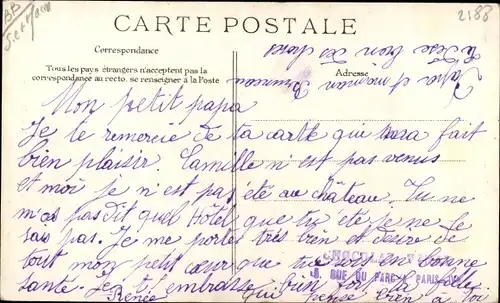 BB
2188
CARTE POSTALE
Correspondance
Tous les pays étrangers n'acceptent pas la
correspondance au recto. se renseigner à la Poste
Adresse
Mon petit papa
Je te remercie de ta carte qui mora fait
bien plaisir. Camille n'est pas venus
et moi je n'est pas été au château. Tu ne
m'as pas dit quel Hôtel que tu été je ne le
sais pas. Je me porte très bien et désire de
tout mon petit cœur que toi en bonne
santé. Je t'embrasse bien fort. Celle
Renée qui pense bien à toi
papa et maman
bien des choses
8, RUE DU PARC PARIS